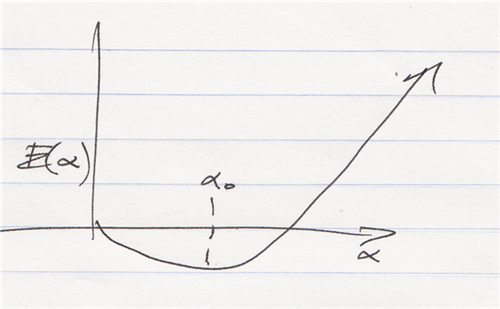 E(α)
α₀
α